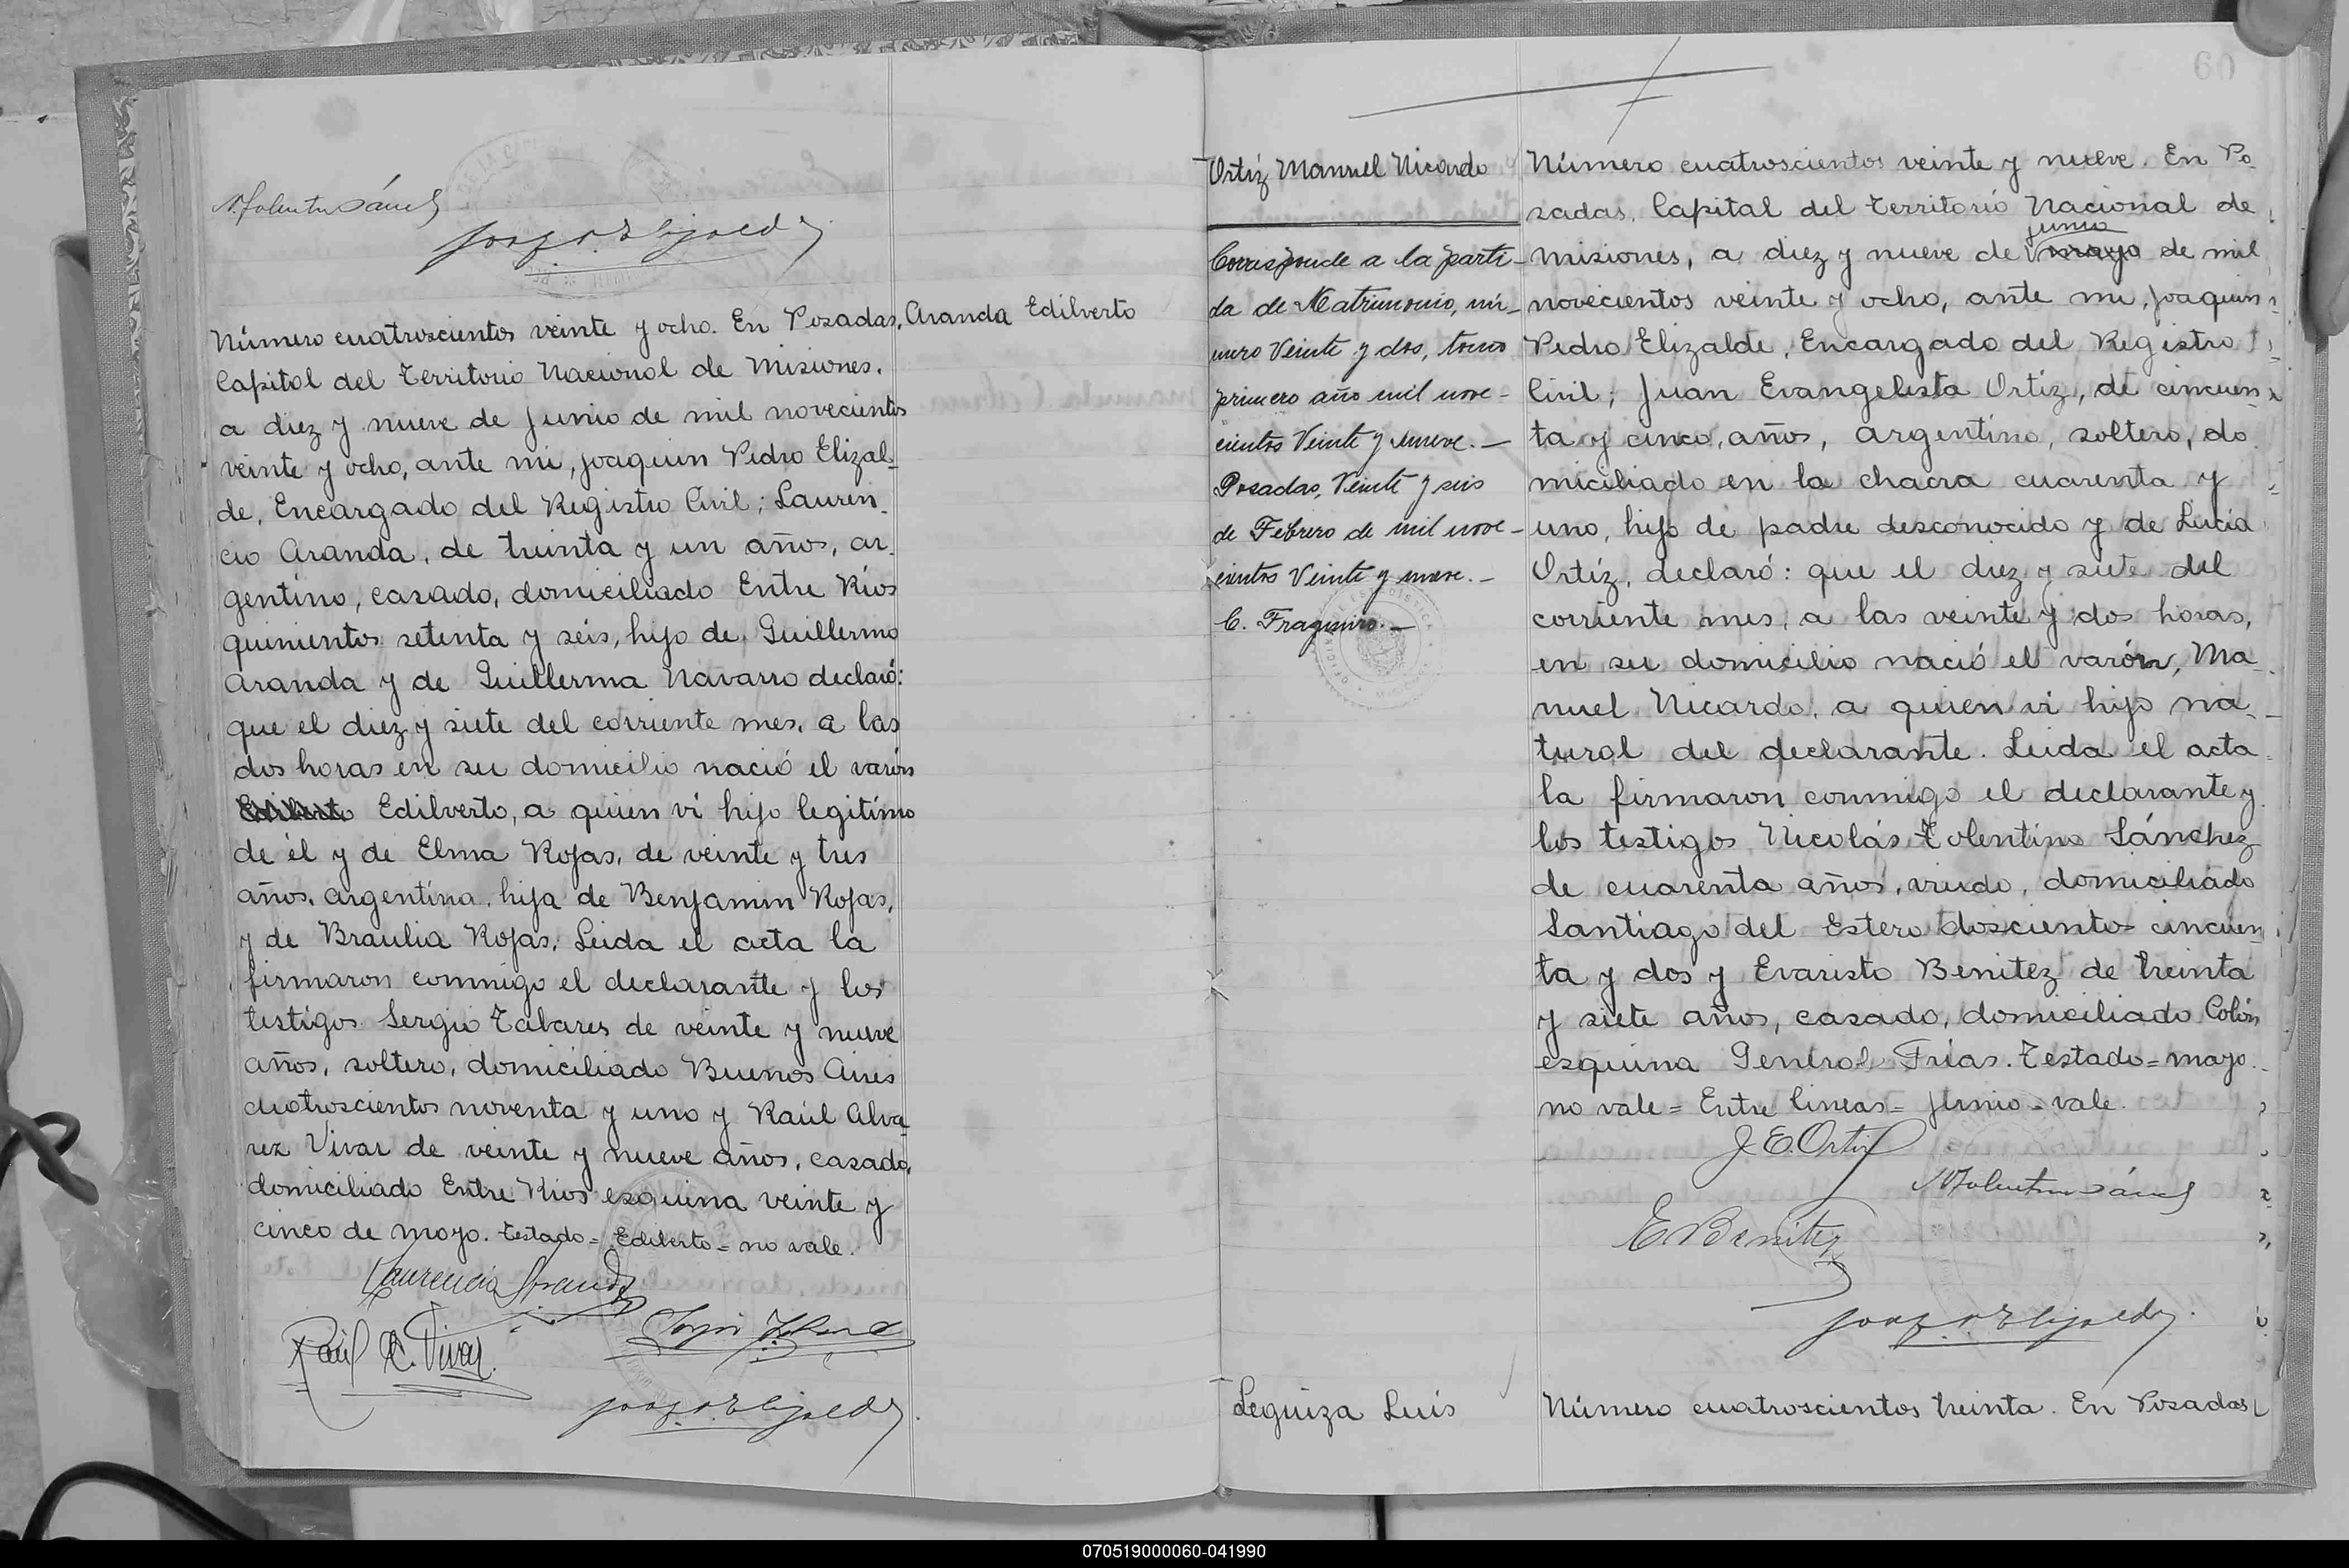 N. Tolentino Sánch
Joaq. P. Elizalde
Número cuatroscientos veinte y ocho. En Posadas,
Capital del Territorio Nacional de Misiones,
a diez y nueve de Junio de mil novecientos
veinte y ocho, ante mi, Joaquin Pedro Elizal-
de, Encargado del Registro Civil; Lauren-
cio Aranda, de treinta y un años, ar-
gentino, casado, domiciliado Entre Rios
quinientos setenta y seis, hijo de Guillermo
Aranda y de Guillerma Navarro declaró:
que el diez y siete del corriente mes, a las
dos horas en su domicilio nació el varón
Edilberto Edilverto, a quien vi hijo legitimo
de él y de Elma Rojas, de veinte y tres
años, argentina, hija de Benjamin Rojas,
y de Braulia Rojas. Leida el acta la
firmaron conmigo el declarante y los
testigos Sergio Tabares de veinte y nueve
años, soltero, domiciliado Buenos Aires
cuatroscientos noventa y uno y Raúl Alva-
rez Vivar de veinte y nueve años, casado,
domiciliado Entre Rios esquina veinte y
cinco de mayo. Testado = Edilberto = no vale.
Laurencio Aranda
Raúl A. Vivar.
Joaq. P. Elizalde
Aranda Edilverto
60
Ortíz Manuel Nicardo
Corresponde a la parti-
da de Matrimonio, nú-
mero Veinte y dos, tomo
primero año mil nove-
cientos Veinte y nueve.—
Posadas, Veinte y seis
de Febrero de mil nove-
cientos Veinte y nueve.—
C. Fragueiro.—
Número cuatroscientos veinte y nueve. En Po-
sadas, Capital del Territorio Nacional de
junio
Misiones, a diez y nueve de mayo de mil
novecientos veinte y ocho, ante mi, Joaquin
Pedro Elizalde, Encargado del Registro
Civil; Juan Evangelista Ortíz, de cincuen-
ta y cinco, años, argentino, soltero, do-
miciliado en la chacra cuarenta y
uno, hijo de padre desconocido y de Lucia
Ortíz, declaró: que el diez y siete del
corriente mes, a las veinte y dos horas,
en su domicilio nació el varón, Ma-
nuel Nicardo, a quien vi hijo na-
tural del declarante. Leida el acta
la firmaron conmigo el declarante y
los testigos Nicolás Tolentino Sánchez
de cuarenta años, viudo, domiciliado
Santiago del Estero doscientos cincuen-
ta y dos y Evaristo Benitez de treinta
y siete años, casado, domiciliado Colón
esquina General Frías. Testado = mayo.
no vale = Entre lineas = junio = vale.
J. E. Ortiz
N. Tolentino Sánch
E Benitez
Joaq. P. Elizalde.
Leguiza Luis
Número cuatroscientos treinta. En Posadas
070519000060-041990